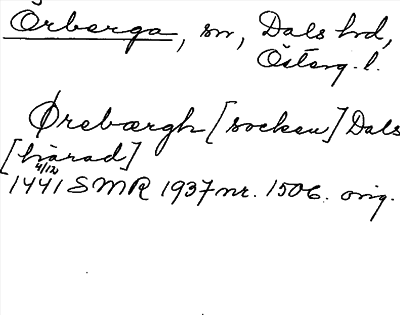 Örberga, sn, Dals hd,
Österg. l.
Ørebærgh [socken] Dals
[härad]
4/12
1441 SMR 1937 nr. 1506. orig.